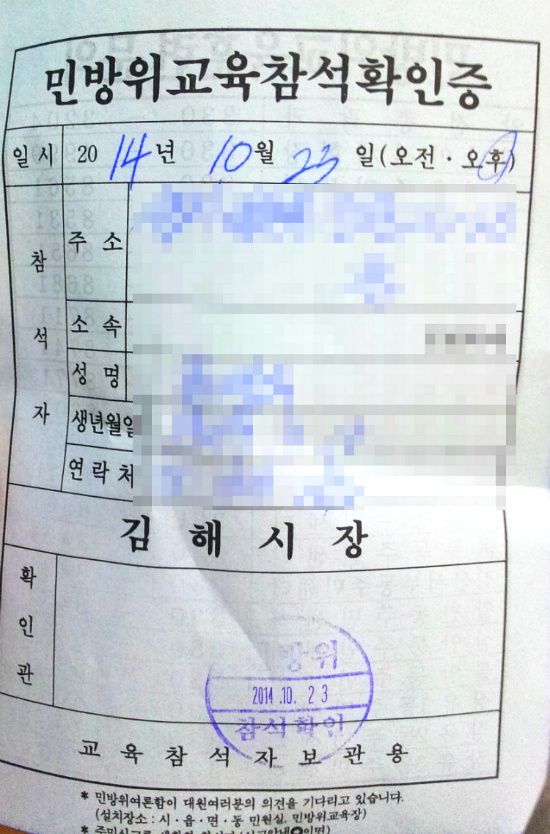 민방위교육참석확인증
일시 2014년 10월 23일(오전·오후)
참석자
주소
소속
성명
생년월일
연락처
김해시장
확인관
방위
2014.10.23
참석확인
교육참석자보관용
* 민방위여론함이 대원여러분의 의견을 기다리고 있습니다.
(설치장소 : 시·읍·면·동 민원실, 민방위교육장)